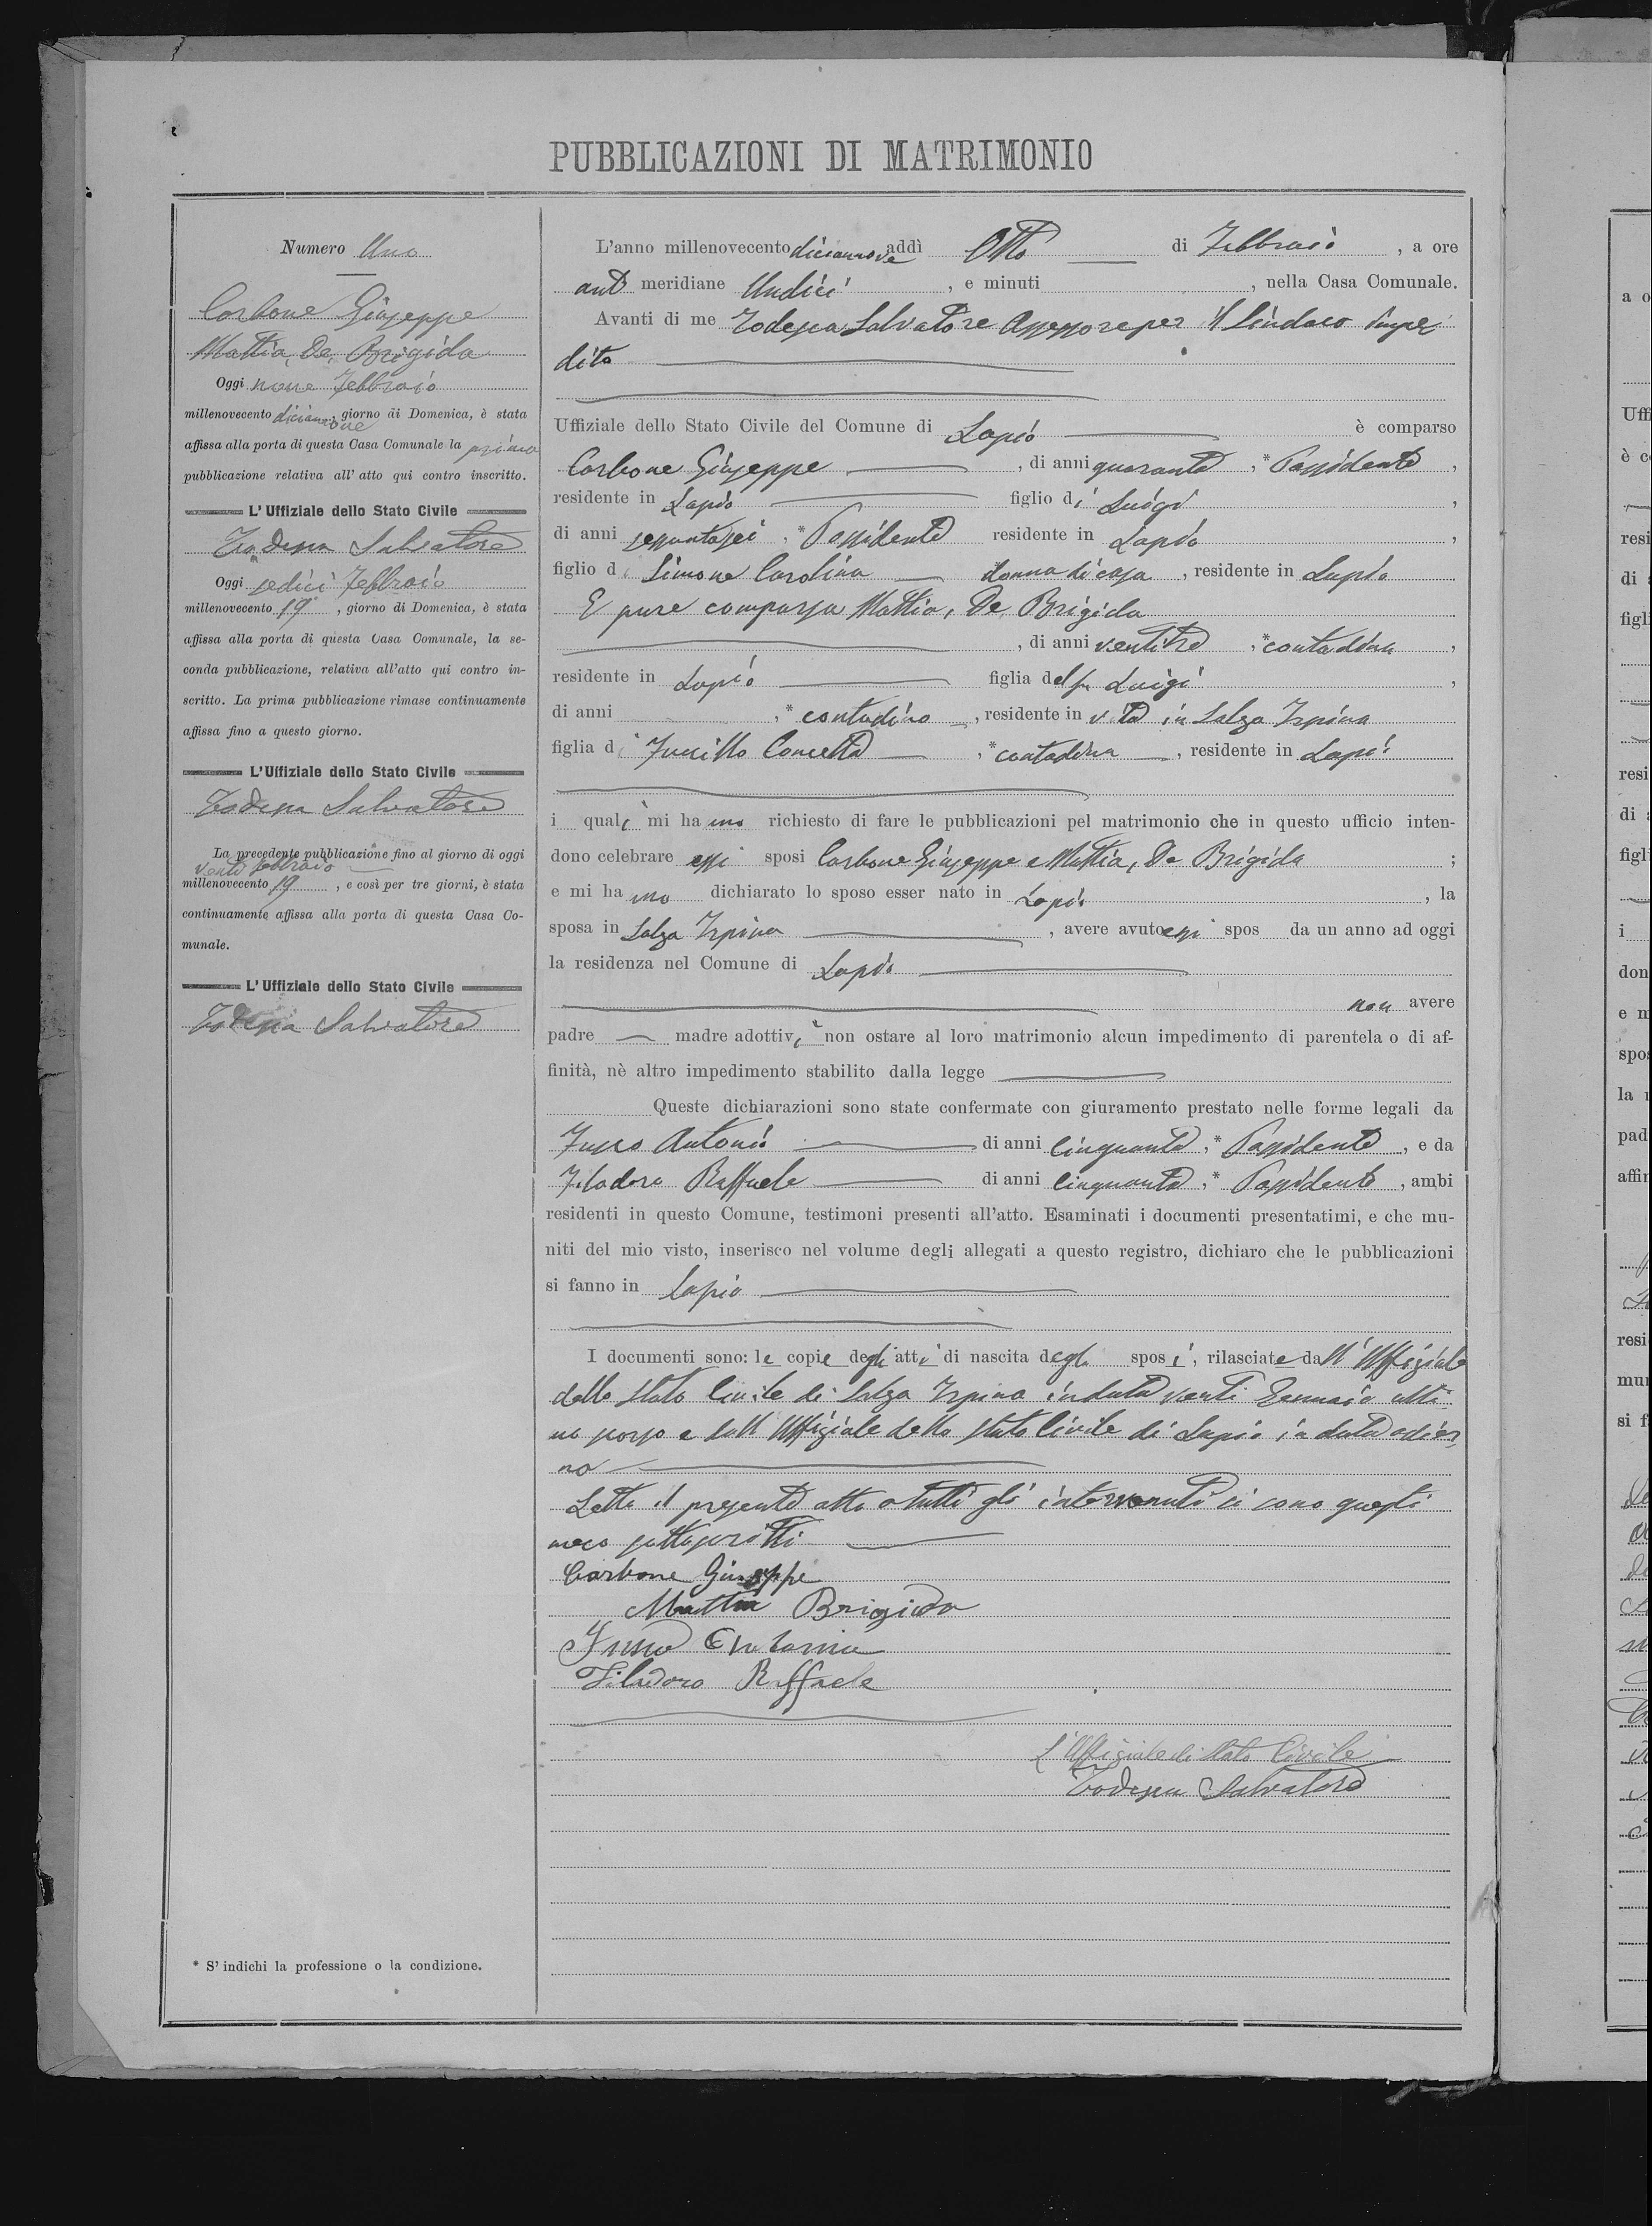 PUBBLICAZIONI DI MATRIMONIO
Numero Uno
Carbone Giuseppe
Mattia, De, Brigida
Oggi nove Febbraio
millenovecento diciannove, giorno di Domenica, è stata
affissa alla porta di questa Casa Comunale la prima
pubblicazione relativa all' atto qui contro inscritto.
L' Uffiziale dello Stato Civile
Salvatore
Oggi sedici Febbraio
millenovecento 19, giorno di Domenica, è stata
affissa alla porta di questa Casa Comunale, la se-
conda pubblicazione, relativa all'atto qui contro in-
scritto. La prima pubblicazione rimase continuamente
affissa fino a questo giorno.
L'Uffiziale dello Stato Civile
Todesca Salvatore
La precedente pubblicazione fino al giorno di oggi
venti febbraio
millenovecento 19, e così per tre giorni, è stata
continuamente affissa alla porta di questa Casa Co-
munale.
L' Uffiziale dello Stato Civile
Todesca Salvatore
* S' indichi la professione o la condizione.
L'anno millenovecento diciannove addì Otto di Febbraio, a ore
ant meridiane Undici, e minuti , nella Casa Comunale.
Avanti di me Todesca Salvatore Assessore per il Sindaco impe
dito
Uffiziale dello Stato Civile del Comune di Lapio è comparso
Carbone Giuseppe, di anni quaranta, * Possidente,
residente in Lapio figlio di Luigi,
di anni settantasei, * Possidente residente in Lapio,
figlio di Simone Carolina donna di casa, residente in Lapio
E pure comparsa Mattia, De, Brigida
, di anni ventitre, * contadina,
residente in Lapio figlia del fu Luigi,
di anni , * contadino, residente in vita in Salza Irpina
figlia di Concetta, * contadina, residente in Lapio
i quali mi hanno richiesto di fare le pubblicazioni pel matrimonio che in questo ufficio inten-
dono celebrare essi sposi Carbone Giuseppe e Mattia, De Brigida;
e mi hanno dichiarato lo sposo esser nato in Lapio, la
sposa in Salza Irpina, avere avuto essi spos da un anno ad oggi
la residenza nel Comune di Lapio
non avere
padre madre adottivi e non ostare al loro matrimonio alcun impedimento di parentela o di af-
finità, nè altro impedimento stabilito dalla legge
Queste dichiarazioni sono state confermate con giuramento prestato nelle forme legali da
Antonio di anni Cinquanta, * Possidente, e da
Filadoro Raffaele di anni Cinquanta, * Possidente, ambi
residenti in questo Comune, testimoni presenti all'atto. Esaminati i documenti presentatimi, e che mu-
niti del mio visto, inserisco nel volume degli allegati a questo registro, dichiaro che le pubblicazioni
si fanno in Lapio
I documenti sono: le copie degli atti di nascita degli sposi, rilasciate dall'Uffiziale
dello Stato Civile di Salza Irpina in data venti Gennaio ulti
mo scorso e dall'Uffiziale dello Stato Civile di Lapio in data odier
na
Letto il presente atto a tutti gli intervenuti si sono questi
meco sottoscritti
Carbone Giuseppe
Mattia Brigida
Antonio
Filadoro Raffaele
L'Uffiziale di Stato Civile
Todesca Salvatore